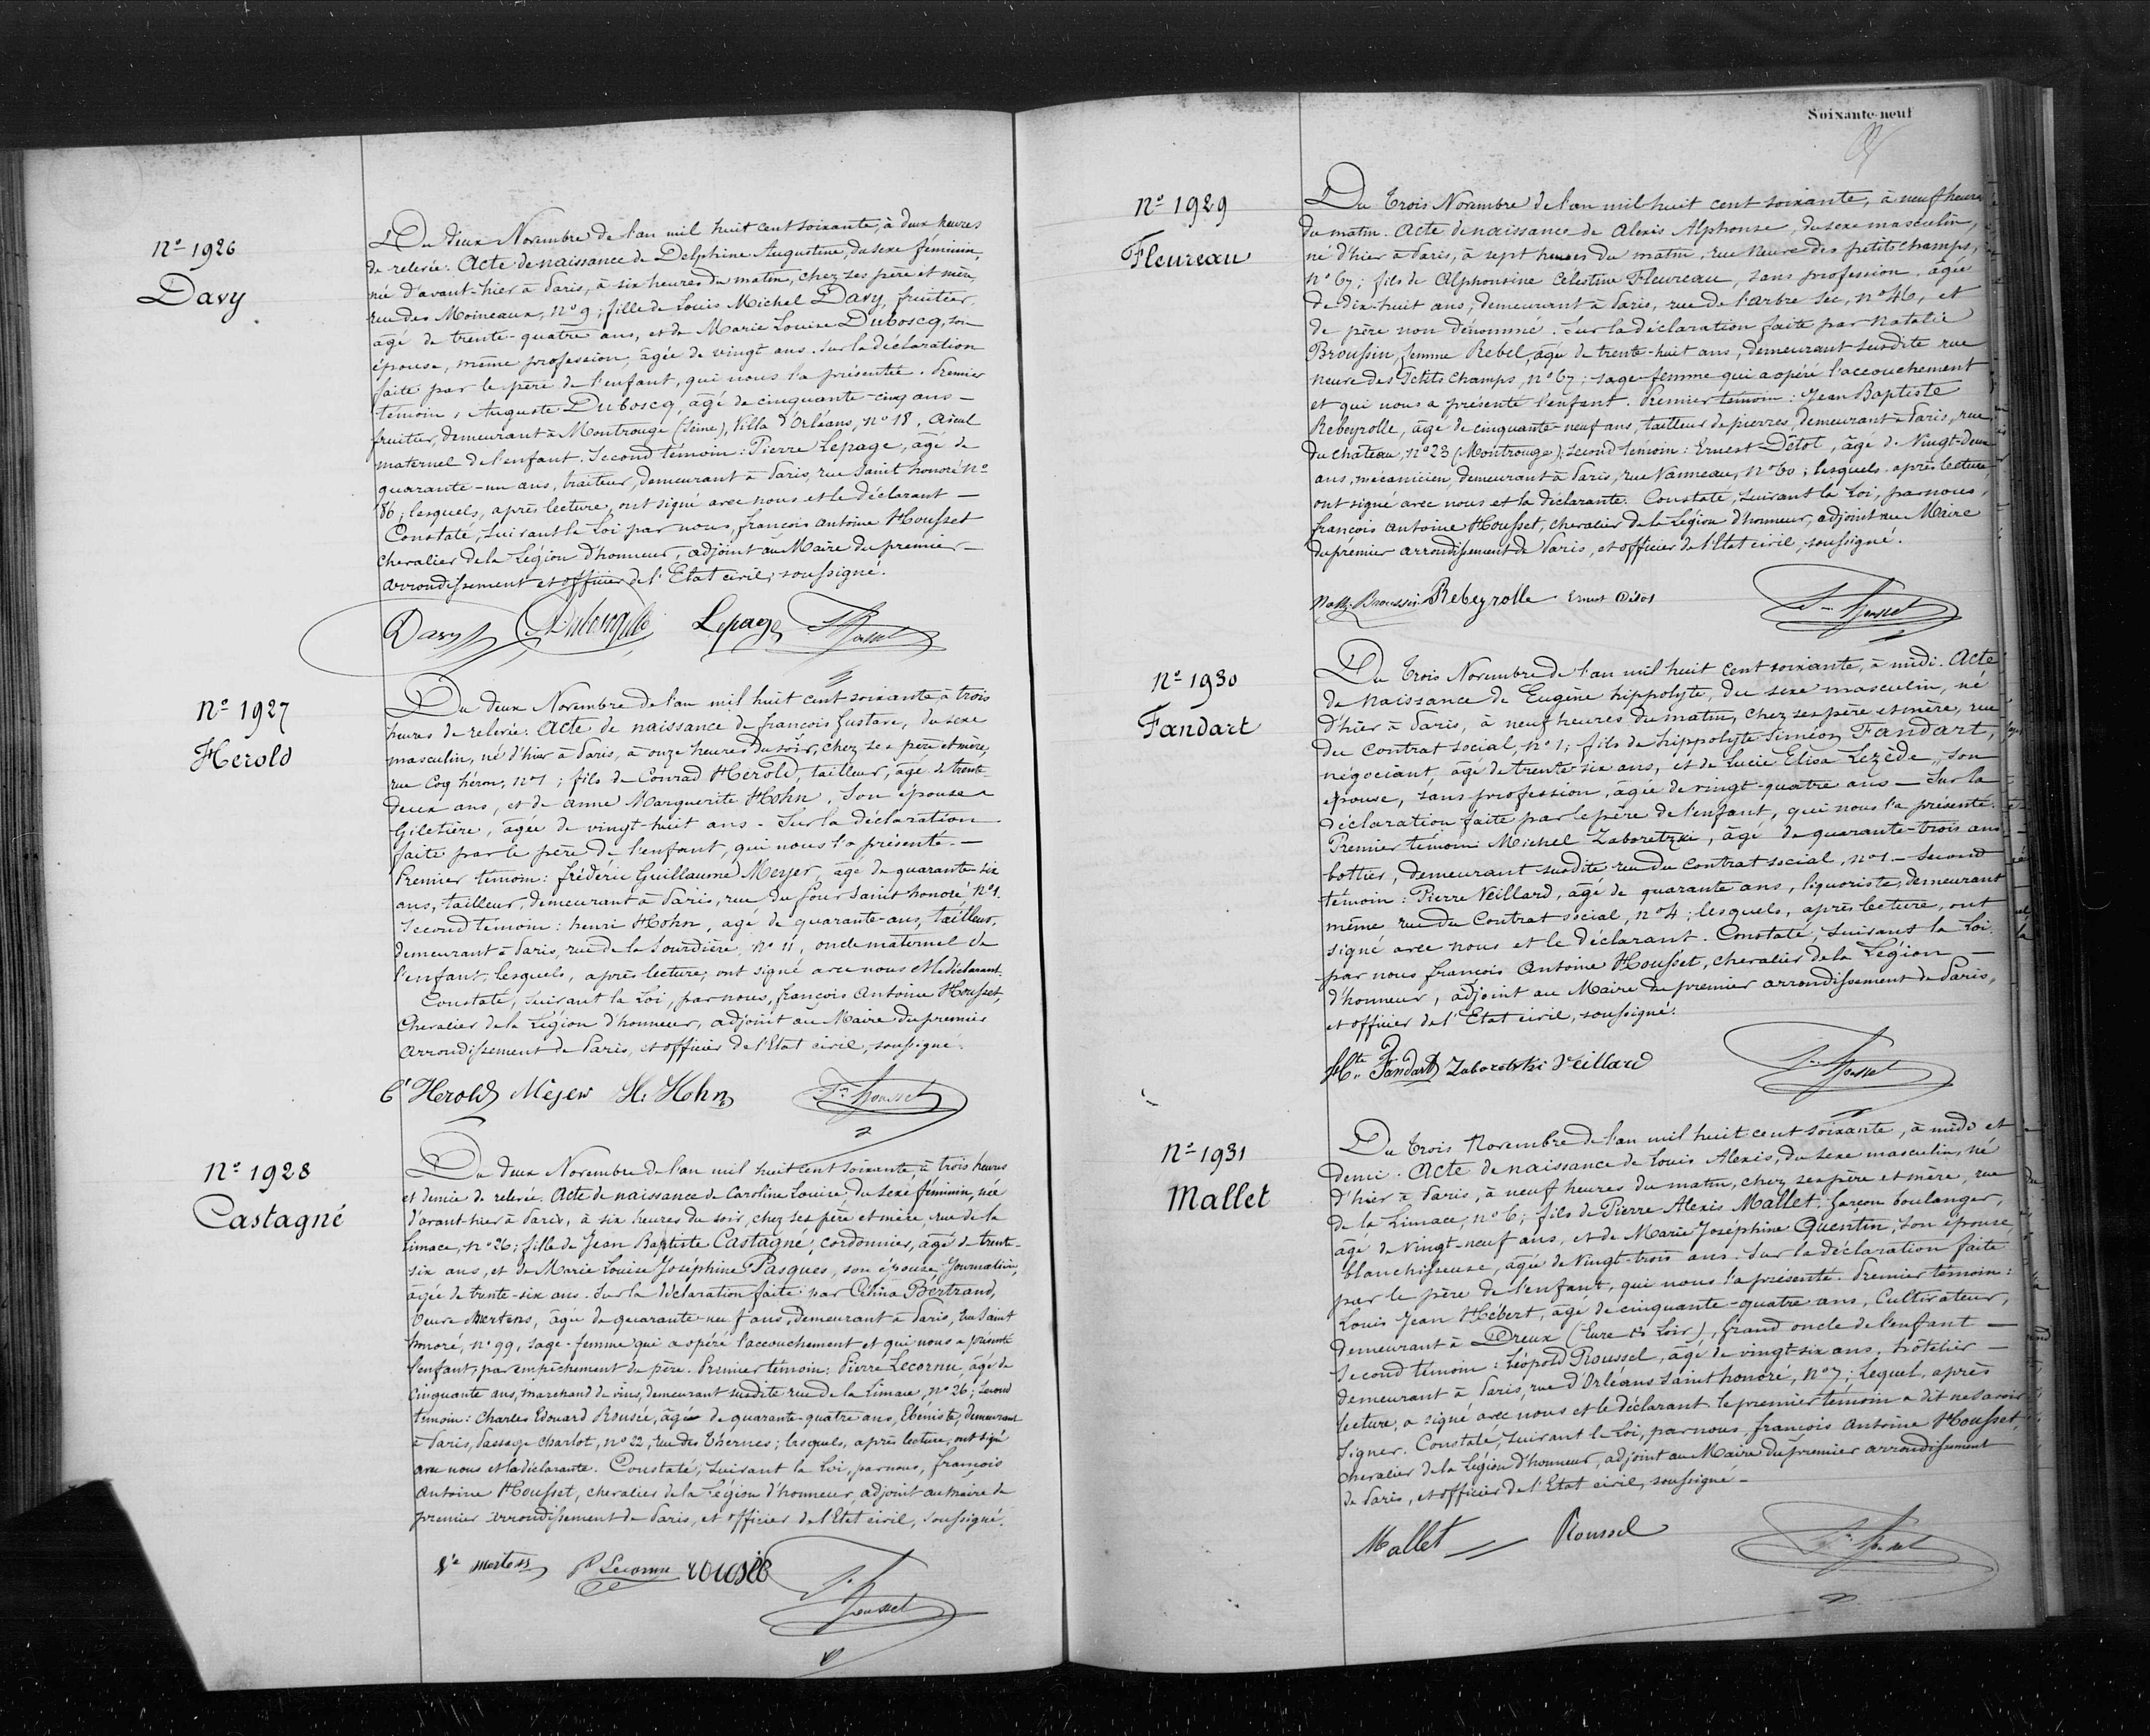 Nº 1926
Davy
Du deux Novembre de l'an mil huit cent soixante, à deux heures
de relevée. Acte de naissance de Delphine Augustine, du sexe féminin,
née d'avant-hier à Paris, à six heures du matin, chez ses père et mère,
rue des Moineaux, nº 9; fille de Louis Michel Davy, fruitier,
âgé de trente-quatre ans, et de Marie Louise Duboscq, son
épouse, même profession, âgée de vingt ans. Sur la déclaration
faite par le père de l'enfant, qui nous l'a présentée. Premier
témoin, Auguste Duboscq, âgé de cinquante-cinq ans —
fruitier, demeurant à Montrouge (Seine), Villa d'Orléans, nº 18, aïeul
maternel de l'enfant. Second témoin: Pierre Lepage, âgé de
quarante-un ans, traiteur, demeurant à Paris, rue Saint honoré nº
86; lesquels, après lecture, ont signé avec nous et le déclarant —
Constaté, suivant la Loi par nous, françois Antoine Housset
chevalier de la Légion d'honneur, adjoint au Maire du premier —
arrondissement et officier de l'Etat civil, soussigné.
Davy Lepage Fs Housset
Nº 1927
Herold
Du deux Novembre de l'an mil huit cent soixante à trois
heures de relevée. Acte de naissance de françois Gustave, du sexe
masculin, né d'hier à Paris, à onze heures du soir, chez ses père et mère,
rue Coq héron, nº 1; fils de Conrad Herold, tailleur, âgé de trente-
deux ans, et de anne Marguerite Hohn, son épouse
Giletière, âgée de vingt-huit ans - Sur la déclaration
faite par le père de l'enfant, qui nous l'a présenté. —
Premier témoin: frédéric Guillaume Meyer, âgé de quarante-six
ans, tailleur, demeurant à Paris, rue du four Saint honoré, nº 1.
Second témoin: henri Hohn, agé de quarante-ans, tailleur,
demeurant à Paris, rue de la Sourdière, nº 11, oncle maternel de
l'enfant; lesquels, après lecture, ont signé avec nous et le déclarant.
Constaté, suivant la Loi, par nous, françois Antoine Housset,
Chevalier de la Légion d'honneur, adjoint au Maire du premier
arrondissement de Paris, et officier de l'Etat civil, soussigné.
C Herold Meyer H. Hohn Fs Housset
Nº 1928
Castagné
Du deux Novembre de l'an mil huit cent soixante à trois heures
et demie de relevée. Acte de naissance de Caroline Louise, du sexe féminin, née
d'avant-hier à Paris, à six heures du soir, chez ses père et mère, rue de la
Limace, nº 26; fille de Jean Baptiste Castagné, cordonnier, âgé de trente-
six ans, et de Marie Louise Joséphine Pasques, son épouse, journalière,
âgée de trente-six ans. Sur la déclaration faite par Célina Bertrand,
Veuve Mertens, âgée de quarante neuf ans, demeurant à Paris, rue Saint
honoré, nº 99, sage-femme qui a opéré l'accouchement et qui nous a présenté
l'enfant, par empêchement du père. Premier témoin: Pierre Lecornu, âgé de
Cinquante ans, marchand de vins, demeurant susdite rue de la Limace, nº 26; second
témoin: Charles Edouard Rousée, âgé de quarante-quatre ans, Ebéniste, demeurant
à Paris, Passage Charlot, nº 22, rue des Thernes; lesquels, après lecture, ont signé
avec nous et la déclarante. Constaté, suivant la Loi, par nous, françois
Antoine Housset, chevalier de la Légion d'honneur, adjoint au maire du
premier arrondissement de Paris, et officier de l'Etat civil, soussigné.
Ve Mertens P Lecornu rousée Fs Housset
Soixante-neuf
Nº 1929
Fleureau
Du trois Novembre de l'an mil huit cent soixante, à neuf heures
du matin. Acte de naissance de Alexis Alphonse, du sexe masculin,
né d'hier à Paris, à sept heures du matin, rue Neuve des petits champs,
nº 67; fils de Alphonsine Célestine Fleureau, sans profession, âgée
de dix-huit ans, demeurant à Paris, rue de l'arbre sec, nº 46, et
de père non dénommé. Sur la déclaration faite par Natalie
Broussin, femme Rebel, âgée de trente-huit ans, demeurant susdite rue
neuve des Petits Champs, nº 67; sage-femme qui a opéré l'accouchement
et qui nous a présenté l'enfant. Premier témoin: Jean Baptiste
Rebeyrolle, âgé de cinquante-neuf ans, tailleur de pierres, demeurant à Paris, rue
du Château, nº 23 (Montrouge); second témoin: Ernest Détot, âgé de Vingt-deux
ans, mécanicien, demeurant à Paris, rue Vanneau, nº 60; lesquels, après lecture
ont signé avec nous et la déclarante. Constaté, suivant la Loi, par nous,
françois Antoine Housset, chevalier de la Légion d'honneur, adjoint au Maire
du premier arrondissement de Paris, et officier de l'Etat civil, soussigné.
Broussin Rebeyrolle Ernest Détot Fs Housset
Nº 1930
Fandart
Du trois Novembre de l'an mil huit cent soixante, à midi. Acte
de Naissance de Eugène hippolyte, du sexe masculin, né
d'hier à Paris, à neuf heures du matin, chez ses père et mère, rue
du Contrat social, nº 1; fils de hippolyte Siméon Fandart,
négociant, âgé de trente-six ans, et de Lucie Elisa Lezède, son
épouse, sans profession, agée de vingt-quatre ans — Sur la
déclaration faite par le père de l'enfant, qui nous l'a présenté.
Premier témoin: Michel Zaboretzki, âgé de quarante-trois ans
bottier, demeurant susdite rue du Contrat social, nº 1 — Second
témoin: Pierre Veillard, âgé de quarante ans, liquoriste, demeurant
même rue du Contrat social, nº 4; lesquels, après lecture, ont
signé avec nous et le déclarant. Constaté, suivant la Loi.
par nous françois Antoine Housset, chevalier de la Légion —
d'honneur, adjoint au Maire du premier arrondissement de Paris,
et officier de l'Etat civil, soussigné.
Hte Fandart Zaboretzki Veillard Fs Housset
Nº 1931
Mallet
Du trois Novembre de l'an mil huit cent soixante, à midi et
demi. Acte de naissance de Louis Alexis, du sexe masculin, né
d'hier à Paris, à neuf heures du matin, chez ses père et mère, rue
de la Limace, nº 6; fils de Pierre Alexis Mallet, garçon boulanger,
âgé de vingt-neuf ans, et de Marie Joséphine Quentin, son épouse,
blanchisseuse, âgée de Vingt-trois ans. Sur la déclaration faite
par le père de l'enfant, qui nous l'a présenté. Premier témoin:
Louis Jean Hébert, âgé de cinquante-quatre ans, Cultivateur,
demeurant à Dreux (Eure et Loir), Grand oncle de l'enfant —
Second témoin: Léopold Roussel, âgé de vingt-six ans, hôtelier —
demeurant à Paris, rue d'Orléans Saint honoré, nº 7; lequel, après
lecture, a signé avec nous et le déclarant. le premier témoin a dit ne savoir
signer. Constaté, suivant la Loi, par nous, françois Antoine Housset,
chevalier de la Légion d'honneur, adjoint au Maire du premier arrondissement
de Paris, et officier de l'Etat civil, soussigné —
Mallet Roussel Fs Housset